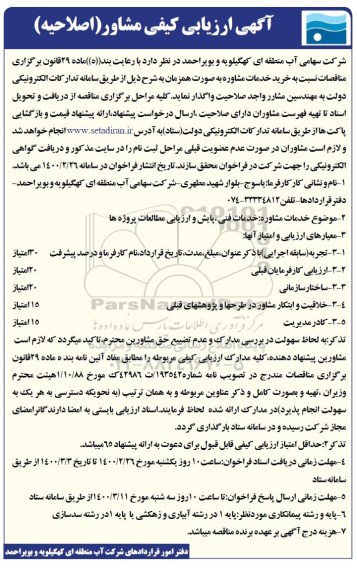 آگهی ارزیابی کیفی مشاور(اصلاحیه)
شرکت سهامی آب منطقه ای کهگیلویه و بویراحمد در نظر دارد با رعایت بند((ه))ماده ۲۹قانون برگزاری
مناقصات نسبت به خرید خدمات مشاوره به صورت همزمان به شرح ذیل از طریق سامانه تدارکات الکترونیکی
دولت به مهندسین مشاور واجد صلاحیت واگذار نماید.کلیه مراحل برگزاری مناقصه از دریافت و تحویل
اسناد تا تهیه فهرست مشاوران دارای صلاحیت ،ارسال درخواست پیشنهاد،ارائه پیشنهاد قیمت و بازگشایی
پاکت ها از طریق سامانه تدارکات الکترونیکی دولت(ستاد)به آدرس www.setadiran.ir انجام خواهد شد
و لازم است مشاوران در صورت عدم عضویت قبلی مراحل ثبت نام را در سایت مذکور و دریافت گواهی
الکترونیکی را جهت شرکت در فراخوان محقق سازند.تاریخ انتشار فراخوان در سامانه ۱۴۰۰/۲/۲۶ می باشد.
۱-نام و نشانی کارفرما:یاسوج-بلوار شهید مطهری-شرکت سهامی آب منطقه ای کهگیلویه و بویراحمد-
دفتر قراردادها-تلفن۳۳۳۳۴۸۱۲-۰۷۴
۲-موضوع خدمات مشاوره:خدمات فنی ،پایش و ارزیابی مطالعات پروژه ها
۳-معیارهای ارزیابی و امتیاز آنها:
۳-۱-تجربه(سابقه اجرایی)باذکر عنوان،مبلغ،مدت،تاریخ قرارداد،نام کارفرما و درصد پیشرفت ۳۰امتیاز
۳-۲-ارزیابی کارفرمایان قبلی ۲۰امتیاز
۳-۳-ساختار سازمانی ۲۰امتیاز
۳-۴-خلاقیت و ابتکار مشاور در طرحها و پژوهشهای قبلی ۱۵امتیاز
۳-۵-کادر مدیریت ۱۵امتیاز
تذکر:به لحاظ سهولت در بررسی مدارک و عدم تضییع حق مشاورین محترم،تاکید میگردد که لازم است
مشاورین پیشنهاد دهنده،کلیه مدارک ارزیابی کیفی مربوطه را مطابق مفاد آئین نامه بند ه ماده ۲۹قانون
برگزاری مناقصات مندرج در تصویب نامه شماره۱۹۳۵۴۲/ت۴۲۹۸۶ک مورخ ۸۸/۱۰/۱هیئت محترم
وزیران ،تهیه و بصورت کامل و ذکر عناوین مربوطه و به همان ترتیب (به نحویکه دسترسی به هر یک به
سهولت انجام پذیرد)در مدارک ارائه شده لحاظ فرمایند.اسناد ارزیابی بایستی به امضا دارندگان امضای
مجاز شرکت رسیده و در سامانه ستاد بارگذاری گردد.
تذکر۲:حداقل امتیاز ارزیابی کیفی قابل قبول برای دعوت به ارائه پیشنهاد ۶۵میباشد.
۴-مهلت زمانی دریافت اسناد فراخوان:ساعت۱۰ روز یکشنبه مورخ ۱۴۰۰/۲/۲۶ تا تاریخ ۱۴۰۰/۳/۳ از طریق
سامانه ستاد
۵-مهلت زمانی ارسال پاسخ فراخوان:تا ساعت ۱۰ روز سه شنبه مورخ ۱۴۰۰/۳/۱۱از طریق سامانه ستاد
۶-پایه و رشته پیمانکاری موردنظر:پایه ۱ در رشته آبیاری و زهکشی یا پایه ۱در رشته سدسازی
۷-هزینه درج آگهی بر عهده برنده مناقصه میباشد.
دفتر امور قراردادهای شرکت آب منطقه ای کهگیلویه و بویراحمد